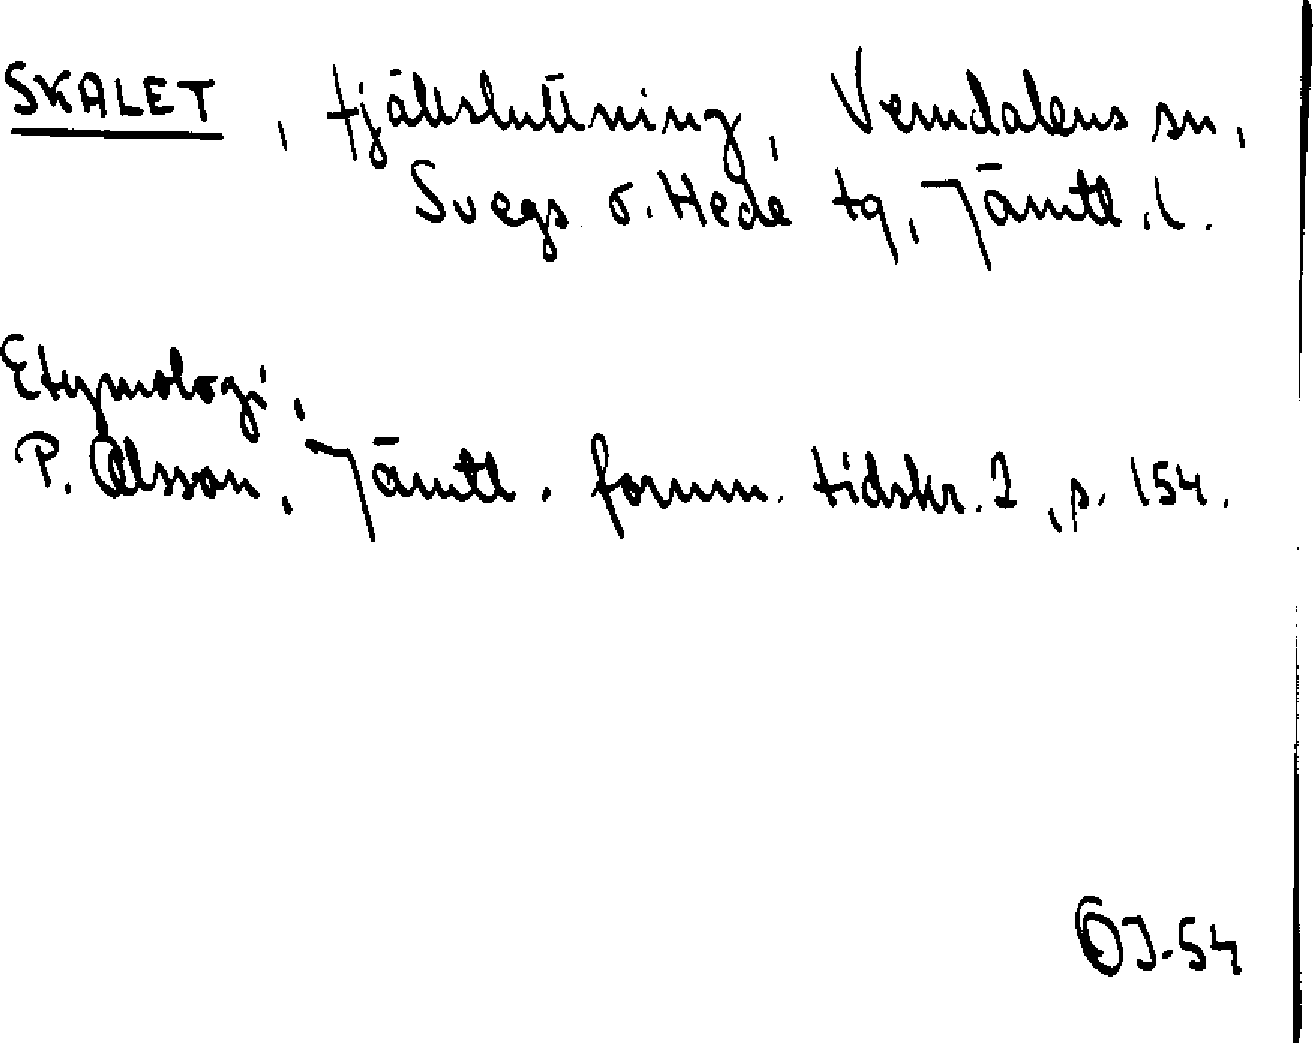 SKALET, fjällsluttning, Vemdalens sn,
Svegs o. Hede tg, Jämtl. l.
Etymologi,
P. Olsson, Jämtl. fornm. tidskr. 2, p. 154.
OJ-54